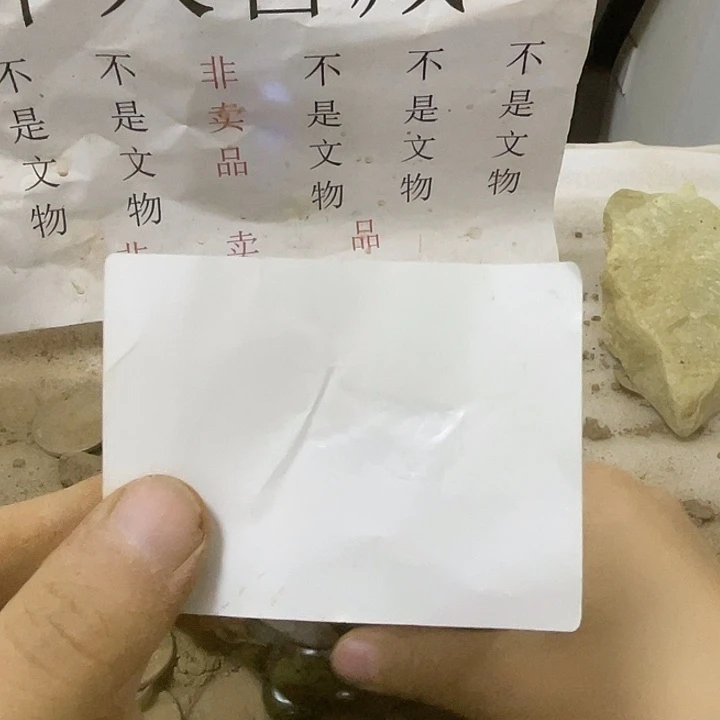 不是文物
不是文物
非卖品
不是文物
不是文物
不是文物
非卖品